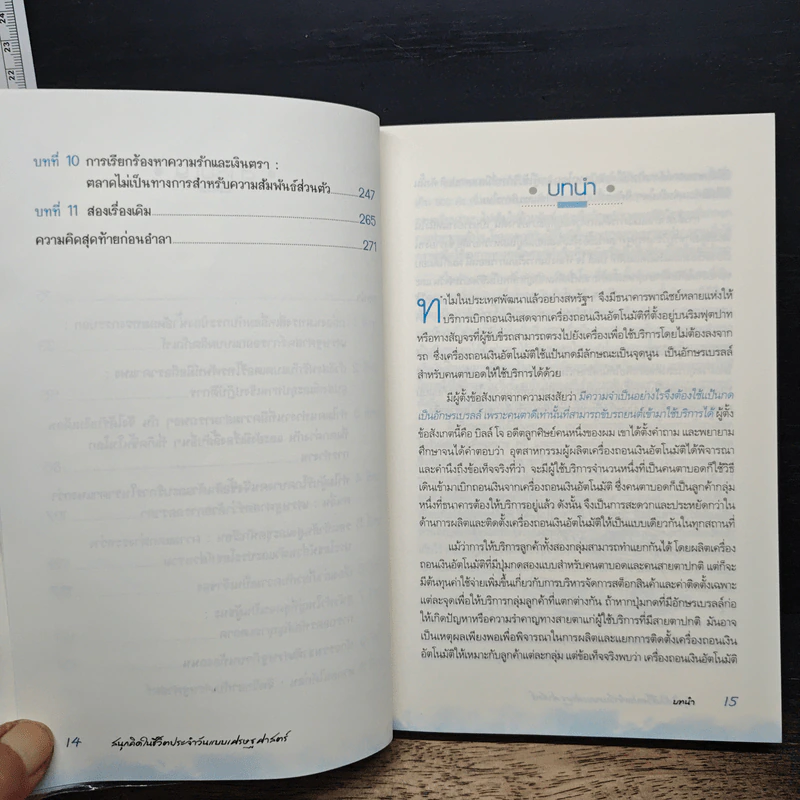 22
23
24
บทที่ 10 การเรียกร้องหาความรักและเงินตรา :
ตลาดไม่เป็นทางการสำหรับความสัมพันธ์ส่วนตัว 247
บทที่ 11 สองเรื่องเดิม 265
ความคิดสุดท้ายก่อนอำลา 271
14 สนุกคิดในชีวิตประจำวันแบบเศรษฐศาสตร์
บทนำ
ทำไมในประเทศพัฒนาแล้วอย่างสหรัฐฯ จึงมีธนาคารพาณิชย์หลายแห่งให้
บริการเบิกถอนเงินสดจากเครื่องถอนเงินอัตโนมัติที่ตั้งอยู่บนริมฟุตปาท
หรือทางสัญจรที่ผู้ขับขี่รถสามารถตรงไปยังเครื่องเพื่อใช้บริการโดยไม่ต้องลงจาก
รถ ซึ่งเครื่องถอนเงินอัตโนมัติใช้แป้นกดมีลักษณะเป็นจุดนูน เป็นอักษรเบรลล์
สำหรับคนตาบอดให้ใช้บริการได้ด้วย
มีผู้ตั้งข้อสังเกตจากความสงสัยว่า มีความจำเป็นอย่างไรจึงต้องใช้แป้นกด
เป็นอักษรเบรลล์ เพราะคนตาดีเท่านั้นที่สามารถขับรถยนต์เข้ามาใช้บริการได้ ผู้ตั้ง
ข้อสังเกตนี้คือ บิลล์ โจ อดีตลูกศิษย์คนหนึ่งของผม เขาได้ตั้งคำถาม และพยายาม
ศึกษาจนได้คำตอบว่า อุตสาหกรรมผู้ผลิตเครื่องถอนเงินอัตโนมัติได้พิจารณา
และคำนึงถึงข้อเท็จจริงที่ว่า จะมีผู้ใช้บริการจำนวนหนึ่งที่เป็นคนตาบอดก็ใช้วิธี
เดินเข้ามาเบิกถอนเงินจากเครื่องถอนเงินอัตโนมัติ ซึ่งคนตาบอดก็เป็นลูกค้ากลุ่ม
หนึ่งที่ธนาคารต้องให้บริการอยู่แล้ว ดังนั้น จึงเป็นการสะดวกและประหยัดกว่าใน
ด้านการผลิตและติดตั้งเครื่องถอนเงินอัตโนมัติให้เป็นแบบเดียวกันในทุกสถานที่
แม้ว่าการให้บริการลูกค้าทั้งสองกลุ่มสามารถทำแยกกันได้ โดยผลิตเครื่อง
ถอนเงินอัตโนมัติที่มีปุ่มกดสองแบบสำหรับคนตาบอดและคนสายตาปกติ แต่ก็จะ
มีต้นทุนค่าใช้จ่ายเพิ่มขึ้นเกี่ยวกับการบริหารจัดการสต็อกสินค้าและค่าติดตั้งเฉพาะ
แต่ละจุดเพื่อให้บริการกลุ่มลูกค้าที่แตกต่างกัน ถ้าหากปุ่มกดที่มีอักษรเบรลล์ก่อ
ให้เกิดปัญหาหรือความรำคาญทางสายตาแก่ผู้ใช้บริการที่มีสายตาปกติ มันอาจ
เป็นเหตุผลเพียงพอเพื่อพิจารณาในการผลิตและแยกการติดตั้งเครื่องถอนเงิน
อัตโนมัติให้เหมาะกับลูกค้าแต่ละกลุ่ม แต่ข้อเท็จจริงพบว่า เครื่องถอนเงินอัตโนมัติ
บทนำ 15